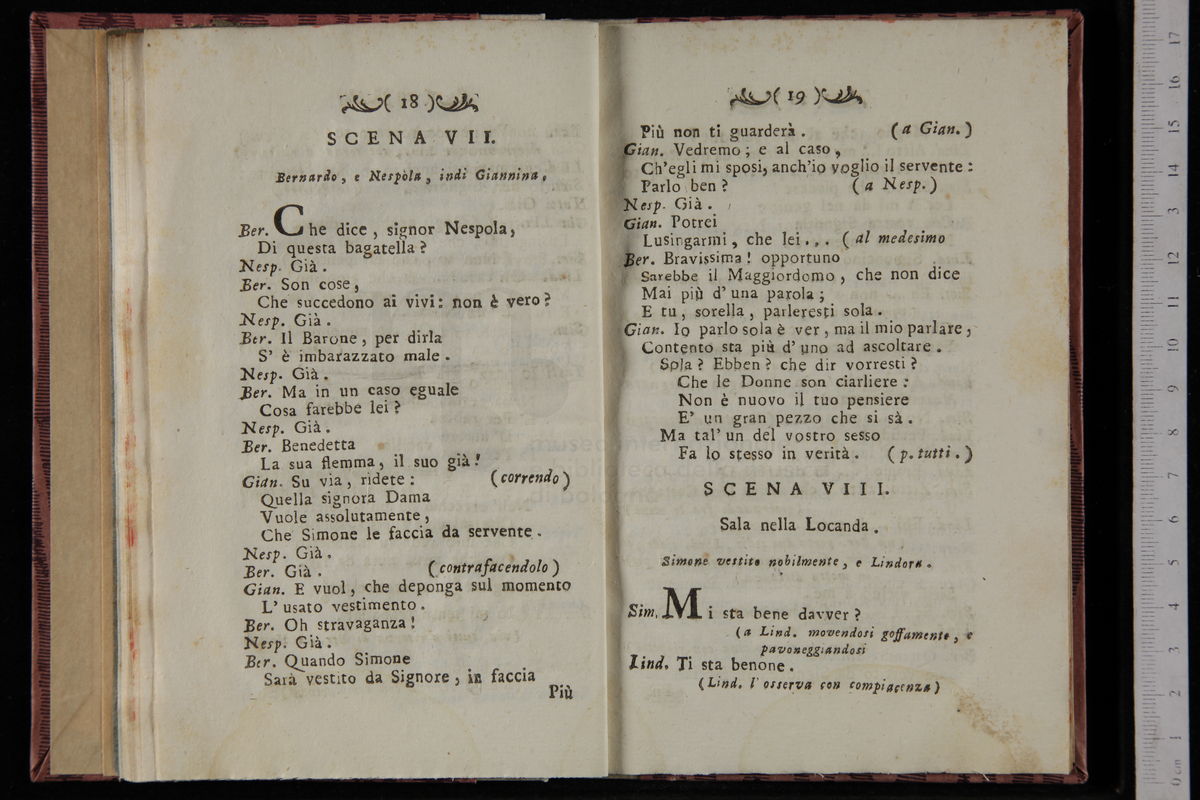 ( 18 )
SCENA VII.
Bernardo, e Nespola, indi Giannina,
Ber. Che dice, signor Nespola,
Di questa bagatella?
Nesp. Già.
Ber. Son cose,
Che succedono ai vivi: non è vero?
Nesp. Già.
Ber. Il Barone, per dirla
S' è imbarazzato male.
Nesp. Già.
Ber. Ma in un caso eguale
Cosa farebbe lei?
Nesp. Già.
Ber. Benedetta
La sua flemma, il suo già!
Gian. Su via, ridete: (correndo)
Quella signora Dama
Vuole assolutamente,
Che Simone le faccia da servente.
Nesp. Già.
Ber. Già. (contrafacendolo)
Gian. E vuol, che deponga sul momento
L' usato vestimento.
Ber. Oh stravaganza!
Nesp. Già.
Ber. Quando Simone
Sarà vestito da Signore, in faccia
Più
( 19 )
Più non ti guarderà. (a Gian.)
Gian. Vedremo; e al caso,
Ch'egli mi sposi, anch'io voglio il servente:
Parlo ben? (a Nesp.)
Nesp. Già.
Gian. Potrei
Lusingarmi, che lei... (al medesimo
Ber. Bravissima! opportuno
Sarebbe il Maggiordomo, che non dice
Mai più d' una parola;
E tu, sorella, parleresti sola.
Gian. Io parlo sola è ver, ma il mio parlare,
Contento sta più d' uno ad ascoltare.
Sola? Ebben? che dir vorresti?
Che le Donne son ciarliere:
Non è nuovo il tuo pensiere
E' un gran pezzo che si sà.
Ma tal' un del vostro sesso
Fa lo stesso in verità. (p. tutti.)
SCENA VIII.
Sala nella Locanda.
Simone vestito nobilmente, e Lindora.
Sim. Mi sta bene davver?
(a Lind. movendosi goffamente, e
pavoneggiandosi
Lind. Ti sta benone.
(Lind. l' osserva con compiacenza)